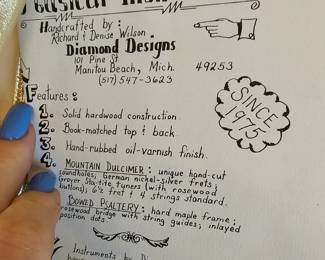 Handcrafted by:
Richard & Denise Wilson
Diamond Designs
101 Pine St.
Manitou Beach, Mich. 49253
(517) 547-3623
SINCE
1975
Features:
1. Solid hardwood construction
2. Book-matched top & back
3. Hand-rubbed oil-varnish finish.
4. MOUNTAIN DULCIMER: unique hand-cut
soundholes; German nickel-silver frets
Grover Sta-tite tuners (with rosewood
buttons); 6½ fret & 4 strings standard.
BOWED PSALTERY: hard maple frame;
rosewood bridge with string guides; inlayed
position dots
Instruments by Di